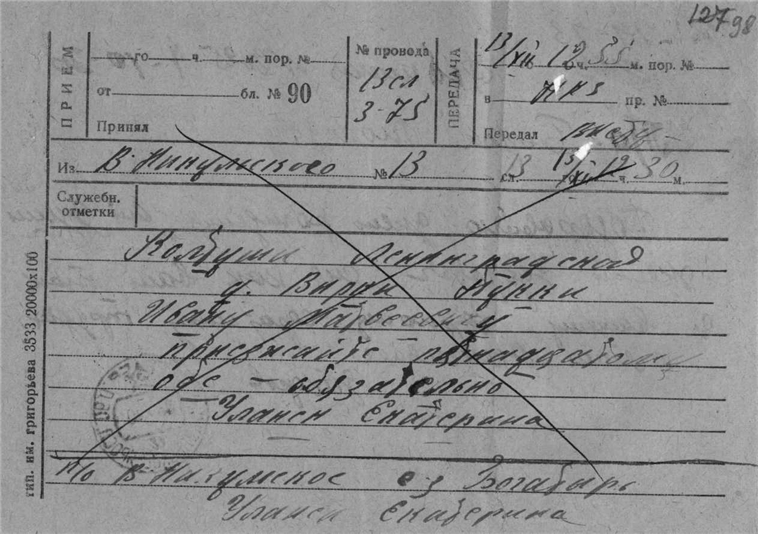 127 98
ПРИЕМ
го ч. м. пор. №
от бл. № 90
Принял
№ провода
13сл
3-75
ПЕРЕДАЧА
13/XII 12 ч. 55 м. пор. №
в пр. №
Передал
Из В-Никулясского № 13 13 сл. 13 го XII 12 ч. 30 м.
Служебн. отметки
Колтуши Ленинградской
д. Вирки Пунки
Ивану Матвеевичу
приезжайте пятнадцатому
обе – обязательно
Уланен Екатерина
В-Никулясское
Уланен Екатерина
тип. им. григорьева 3533 20000х100